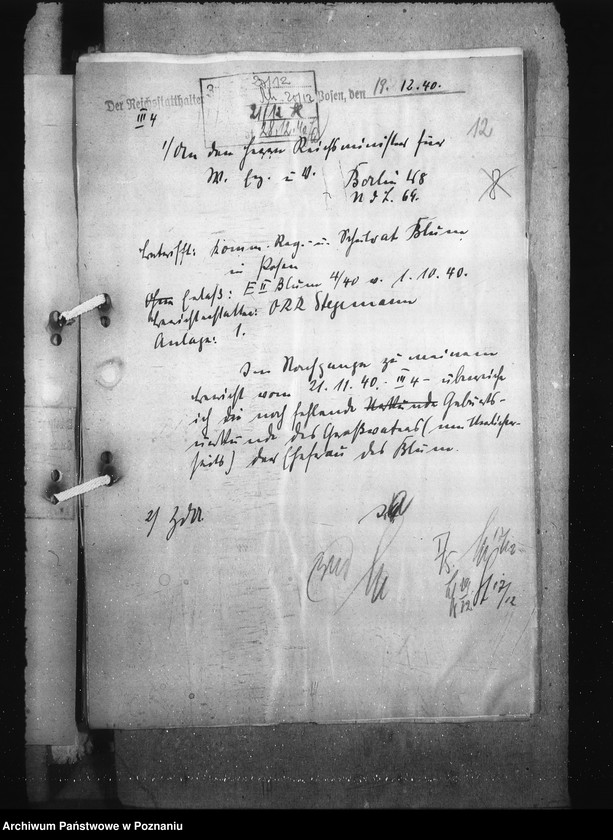 Der Reichsstatthalter
Posen, den 19. 12. 40.
III 4
20/12
21/12
12
1/ An den Herrn Reichsminister für
W. Erz. u. V.
Berlin W8
U d L. 69.
8
Betrifft: Komm. Reg.- u. Schulrat Blum
in Posen
Erlaß: E II Blum 4/40 v. 1. 10. 40.
Berichterstatter: ORR Stegemann
Anlage: 1.
Im Nachgange zu meinem
Bericht vom 21. 11. 40. - III 4 - überreiche
ich die noch fehlende Urkunde Geburts-
urkunde des Großvaters (mütterlicher-
seits) der Ehefrau des Blum.
2/ ZdA
17/12
Archiwum Państwowe w Poznaniu